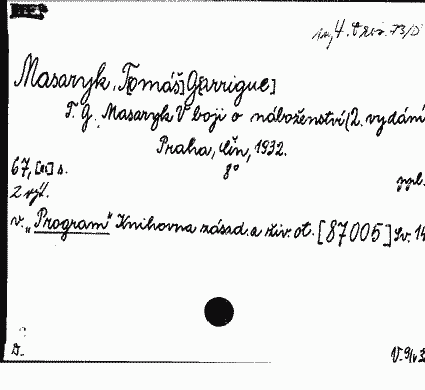 Masaryk, Tomáš [Garrigue]
T. G. Masaryk V boji o náboženství (2. vydání
Praha, Čin, 1932.
67, [III] s. 8°
2 výt.
v. „Program“ Knihovna zásad. a živ. ot. [87005] Sv. 14
D.